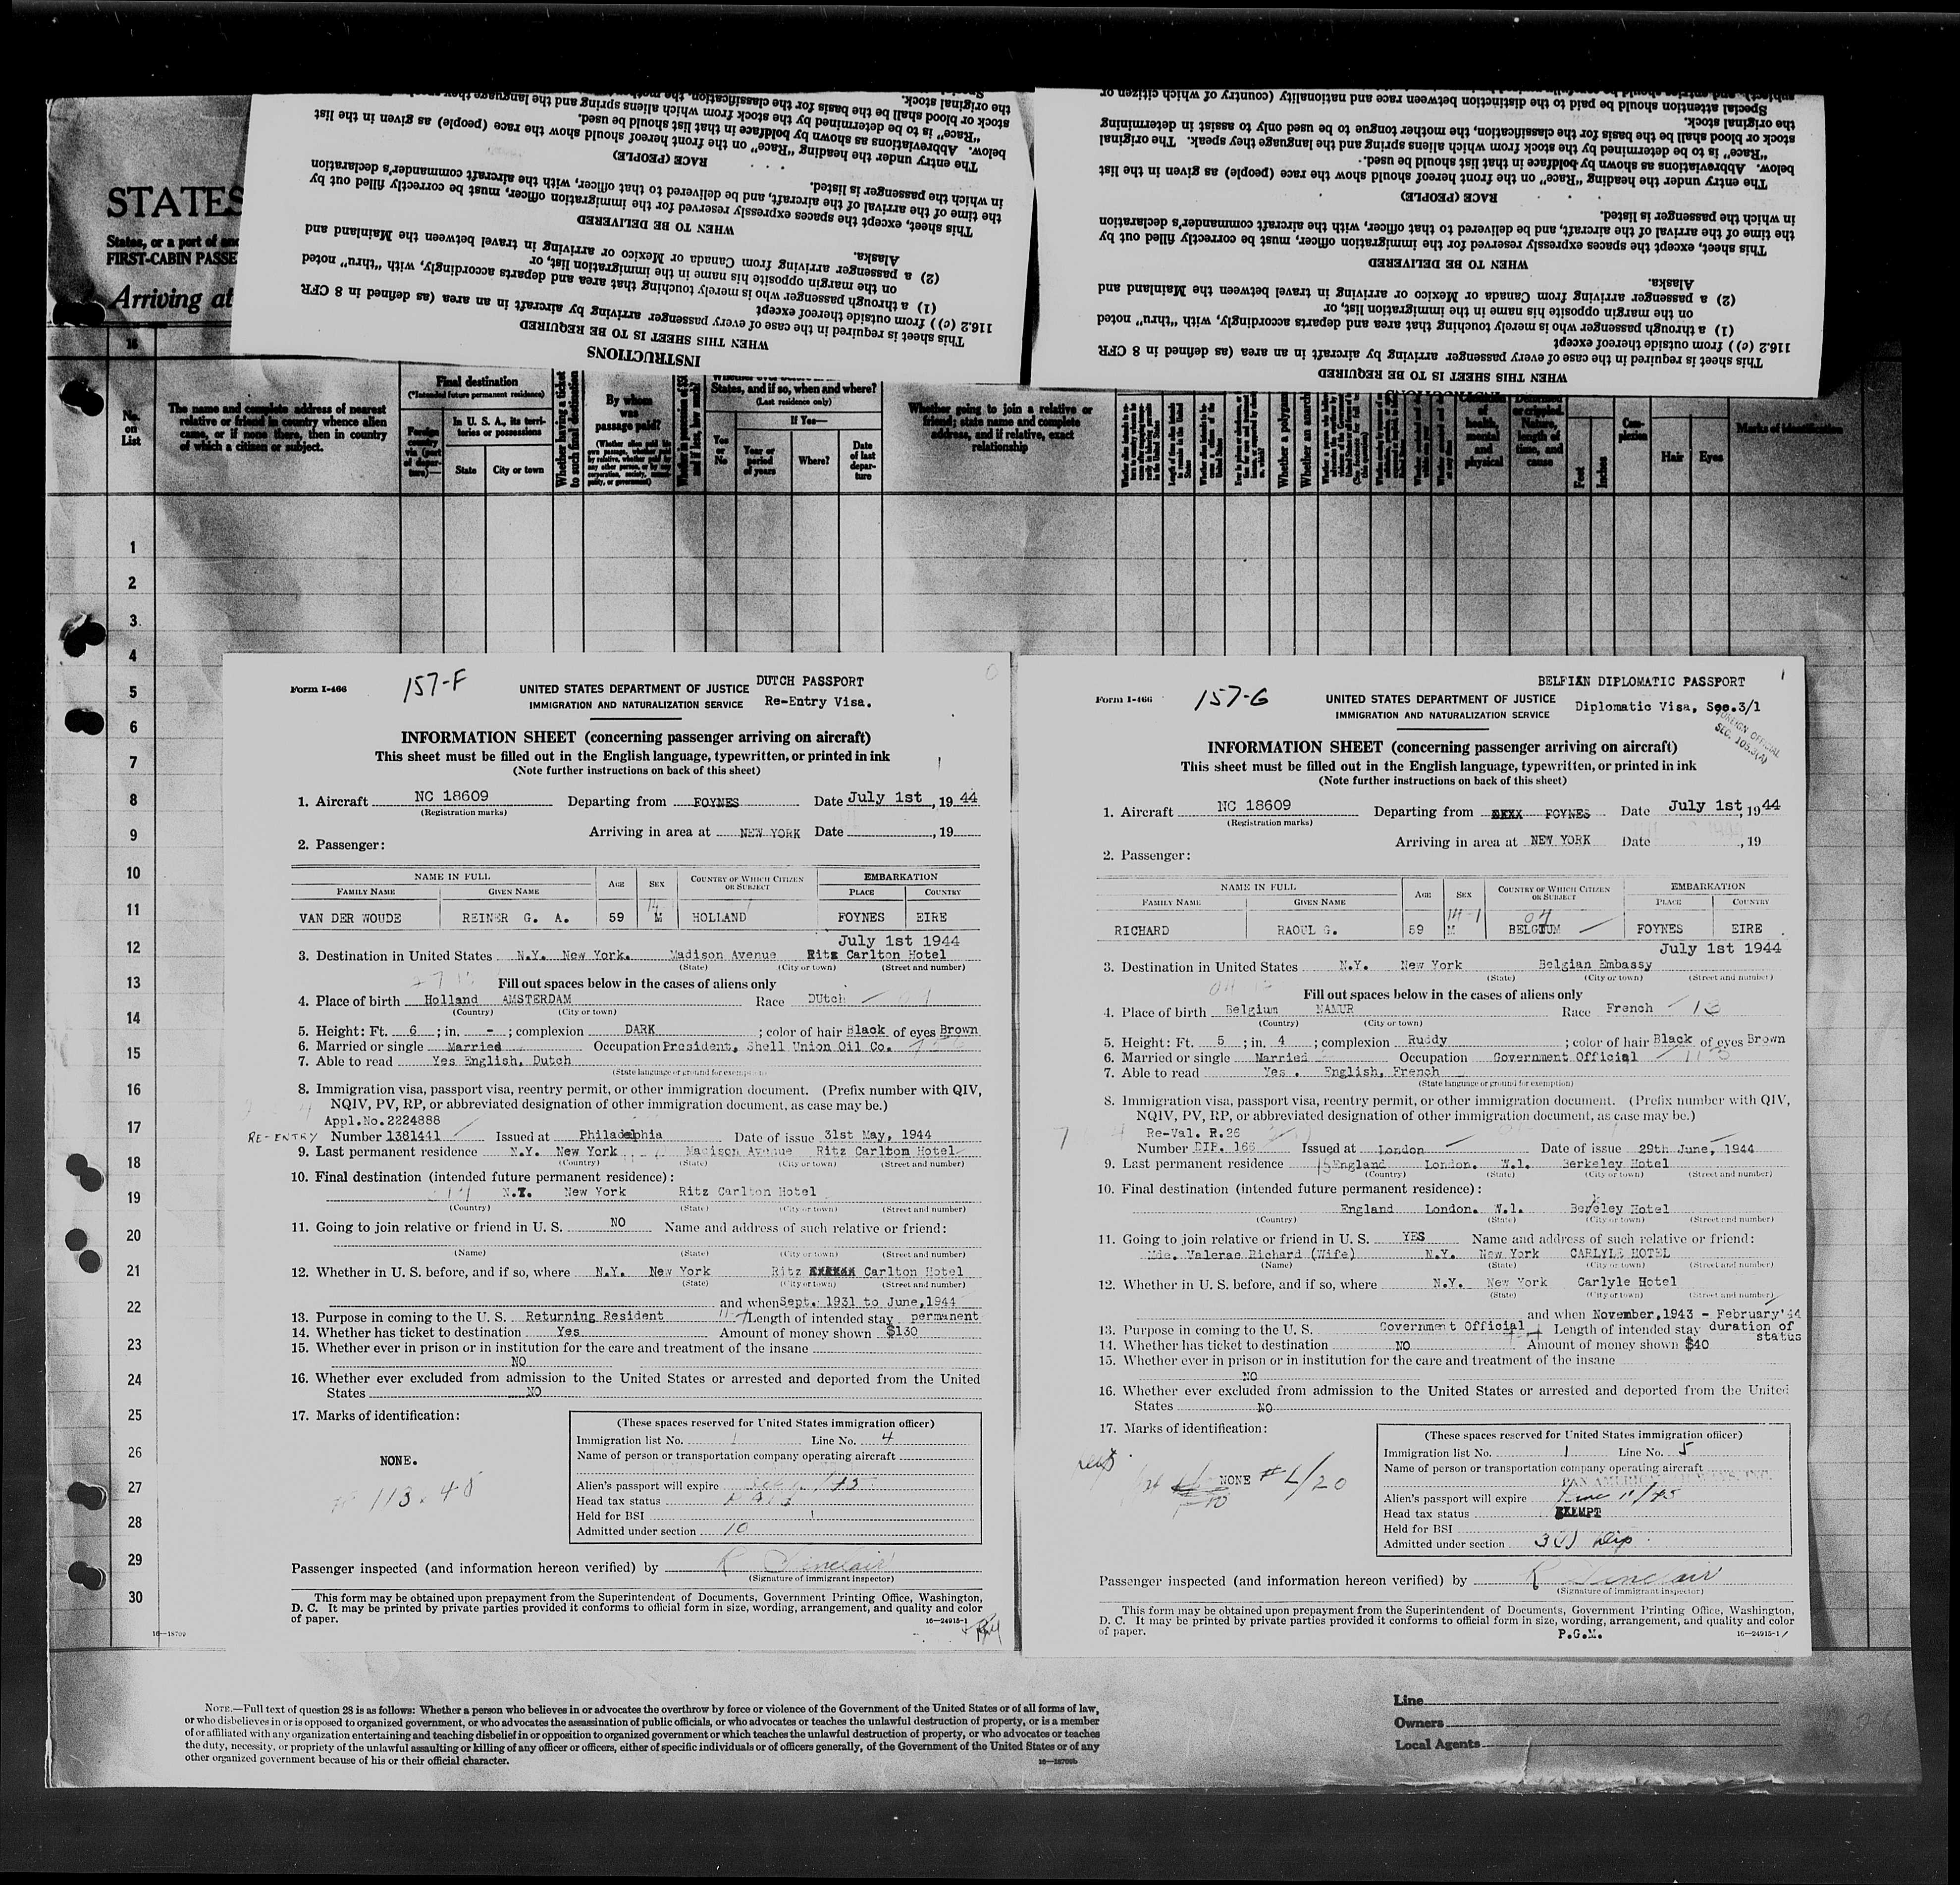 STATES
States, or a part of
FIRST-CABIN PASSE
Arriving at
INSTRUCTIONS
WHEN THIS SHEET IS TO BE REQUIRED
This sheet is required in the case of every passenger arriving by aircraft in an area (as defined in 8 CFR
116.2 (c)) from outside thereof except
(1) a through passenger who is merely touching that area and departs accordingly, with "thru" noted
on the margin opposite his name in the immigration list, or
(2) a passenger arriving from Canada or Mexico or arriving in travel between the Mainland and
Alaska.
WHEN TO BE DELIVERED
This sheet, except the spaces expressly reserved for the immigration officer, must be correctly filled out by
the time of the arrival of the aircraft, and be delivered to that officer, with the aircraft commander's declaration
in which the passenger is listed.
RACE (PEOPLE)
The entry under the heading "Race" on the front hereof should show the race (people) as given in the list
below. Abbreviations as shown by boldface in that list should be used.
"Race" is to be determined by the stock from which aliens spring and the language they
stock or blood shall be the basis for the classification, the mother
the original stock.
WHEN THIS SHEET IS TO BE REQUIRED
This sheet is required in the case of every passenger arriving by aircraft in an area (as defined in 8 CFR
116.2 (c)) from outside thereof except
(1) a through passenger who is merely touching that area and departs accordingly, with "thru" noted
on the margin opposite his name in the immigration list, or
(2) a passenger arriving from Canada or Mexico or arriving in travel between the Mainland and
Alaska.
WHEN TO BE DELIVERED
This sheet, except the spaces expressly reserved for the immigration officer, must be correctly filled out by
the time of the arrival of the aircraft, and be delivered to that officer, with the aircraft commander's declaration
in which the passenger is listed.
RACE (PEOPLE)
The entry under the heading "Race" on the front hereof should show the race (people) as given in the list
below. Abbreviations as shown by boldface in that list should be used.
"Race" is to be determined by the stock from which aliens spring and the language they speak. The original
stock or blood shall be the basis for the classification, the mother tongue to be used only to assist in determining
the original stock.
Special attention should be paid to the distinction between race and nationality (country of which citizen or
16
No. on List
The name and complete address of nearest relative or friend in country whence alien came, or if none there, then in country of which a citizen or subject.
Final destination
(*Intended future permanent residence)
Foreign country via (port of departure)
In U. S. A., its territories or possessions
State
City or town
Whether having a ticket to such final destination
By whom was passage paid?
States, and if so, when and where?
(Last residence only)
Yes or No
If Yes—
Year or period of years
Where?
Date of last departure
Whether going to join a relative or friend; state name and complete address, and if relative, exact relationship
Whether a polygamist
Whether an anarchist
health, mental and physical
Deformed or crippled. Nature, length of time, and cause
Feet
Inches
Complexion
Hair
Eyes
Marks of identification
1
2
3
4
5
6
7
8
9
10
11
12
13
14
15
16
17
18
19
20
21
22
23
24
25
26
27
28
29
30
16—18709
Form I-466
157-F
DUTCH PASSPORT
UNITED STATES DEPARTMENT OF JUSTICE
Re-Entry Visa.
IMMIGRATION AND NATURALIZATION SERVICE
INFORMATION SHEET (concerning passenger arriving on aircraft)
This sheet must be filled out in the English language, typewritten, or printed in ink
(Note further instructions on back of this sheet)
1. Aircraft NC 18609 Departing from FOYNES Date July 1st, 1944
(Registration marks)
Arriving in area at NEW YORK Date , 19
2. Passenger:
NAME IN FULL AGE SEX COUNTRY OF WHICH CITIZEN OR SUBJECT EMBARKATION
FAMILY NAME GIVEN NAME PLACE COUNTRY
VAN DER WOUDE REINER G. A. 59 M HOLLAND FOYNES EIRE
July 1st 1944
3. Destination in United States N.Y. New York. Madison Avenue Ritz Carlton Hotel
(State) (City or town) (Street and number)
Fill out spaces below in the cases of aliens only
4. Place of birth Holland AMSTERDAM Race DUtch
(Country) (City or town)
5. Height: Ft. 6 ; in. - ; complexion DARK ; color of hair Black of eyes Brown
6. Married or single Married Occupation President, Shell Union Oil Co.
7. Able to read Yes English, Dutch
(State language or ground for exemption)
8. Immigration visa, passport visa, reentry permit, or other immigration document. (Prefix number with QIV,
NQIV, PV, RP, or abbreviated designation of other immigration document, as case may be.)
Appl.No.2224888
RE-ENTRY Number 1381441 Issued at Philadelphia Date of issue 31st May, 1944
9. Last permanent residence N.Y. New York Madison Avenue Ritz Carlton Hotel
(Country) (State) (City or town) (Street and number)
10. Final destination (intended future permanent residence):
N.Y. New York Ritz Carlton Hotel
(Country) (State) (City or town) (Street and number)
11. Going to join relative or friend in U. S. NO Name and address of such relative or friend:
(Name) (State) (City or town) (Street and number)
12. Whether in U. S. before, and if so, where N.Y. New York Ritz Carlton Hotel
(State) (City or town) (Street and number)
and when Sept. 1931 to June,1944
13. Purpose in coming to the U. S. Returning Resident Length of intended stay permanent
14. Whether has ticket to destination Yes Amount of money shown $130
15. Whether ever in prison or in institution for the care and treatment of the insane
NO
16. Whether ever excluded from admission to the United States or arrested and deported from the United
States NO
17. Marks of identification:
NONE.
(These spaces reserved for United States immigration officer)
Immigration list No. 1 Line No. 4
Name of person or transportation company operating aircraft
Alien's passport will expire
Head tax status
Held for BSI
Admitted under section 10
Passenger inspected (and information hereon verified) by R Sinclair
(Signature of immigrant inspector)
This form may be obtained upon prepayment from the Superintendent of Documents, Government Printing Office, Washington,
D. C. It may be printed by private parties provided it conforms to official form in size, wording, arrangement, and quality and color
of paper.
16—24915-1
Form I-466
157-G
BELFIAN DIPLOMATIC PASSPORT
UNITED STATES DEPARTMENT OF JUSTICE
Diplomatic Visa, Sec.3/1
IMMIGRATION AND NATURALIZATION SERVICE
FOREIGN OFFICIAL
INFORMATION SHEET (concerning passenger arriving on aircraft)
This sheet must be filled out in the English language, typewritten, or printed in ink
(Note further instructions on back of this sheet)
1. Aircraft NC 18609 Departing from FOYNES Date July 1st, 1944
(Registration marks)
Arriving in area at NEW YORK Date , 19
2. Passenger:
NAME IN FULL AGE SEX COUNTRY OF WHICH CITIZEN OR SUBJECT EMBARKATION
FAMILY NAME GIVEN NAME PLACE COUNTRY
RICHARD RAOUL G. 59 M BELGIUM FOYNES EIRE
July 1st 1944
3. Destination in United States N.Y. New York Belgian Embassy
(State) (City or town) (Street and number)
Fill out spaces below in the cases of aliens only
4. Place of birth Belgium NAMUR Race French
(Country) (City or town)
5. Height: Ft. 5 ; in. 4 ; complexion Ruddy ; color of hair Black of eyes Brown
6. Married or single Married Occupation Government Official
7. Able to read Yes. English, French
(State language or ground for exemption)
8. Immigration visa, passport visa, reentry permit, or other immigration document. (Prefix number with QIV,
NQIV, PV, RP, or abbreviated designation of other immigration document, as case may be.)
Re-Val. R.26
Number DIP. 166 Issued at London Date of issue 29th June, 1944
9. Last permanent residence England London. W.1. Berkeley Hotel
(Country) (State) (City or town) (Street and number)
10. Final destination (intended future permanent residence):
England London. W.1. Berkeley Hotel
(Country) (State) (City or town) (Street and number)
11. Going to join relative or friend in U. S. YES Name and address of such relative or friend:
Mde. Valerae Richard (Wife) N.Y. New York CARLYLE HOTEL
(Name) (State) (City or town) (Street and number)
12. Whether in U. S. before, and if so, where N.Y. New York Carlyle Hotel
(State) (City or town) (Street and number)
and when November,1943 - February'44
13. Purpose in coming to the U. S. Government Official Length of intended stay duration of status
14. Whether has ticket to destination NO Amount of money shown $40
15. Whether ever in prison or in institution for the care and treatment of the insane
NO
16. Whether ever excluded from admission to the United States or arrested and deported from the United
States NO
17. Marks of identification:
NONE # L/20
(These spaces reserved for United States immigration officer)
Immigration list No. 1 Line No. 5
Name of person or transportation company operating aircraft
PAN AMERICAN AIRWAYS, INC.
Alien's passport will expire
Head tax status EXEMPT
Held for BSI
Admitted under section 3(1) Dip.
Passenger inspected (and information hereon verified) by R Sinclair
(Signature of immigrant inspector)
This form may be obtained upon prepayment from the Superintendent of Documents, Government Printing Office, Washington,
D. C. It may be printed by private parties provided it conforms to official form in size, wording, arrangement, and quality and color
of paper.
P.G.M.
16—24915-1
NOTE.—Full text of question 28 is as follows: Whether a person who believes in or advocates the overthrow by force or violence of the Government of the United States or of all forms of law,
or who disbelieves in or is opposed to organized government, or who advocates the assassination of public officials, or who advocates or teaches the unlawful destruction of property, or is a member
of or affiliated with any organization entertaining and teaching disbelief in or opposition to organized government or which teaches the unlawful destruction of property, or who advocates or teaches
the duty, necessity, or propriety of the unlawful assaulting or killing of any officer or officers, either of specific individuals or of officers generally, of the Government of the United States or of any
other organized government because of his or their official character.
16—18709b
Line
Owners
Local Agents